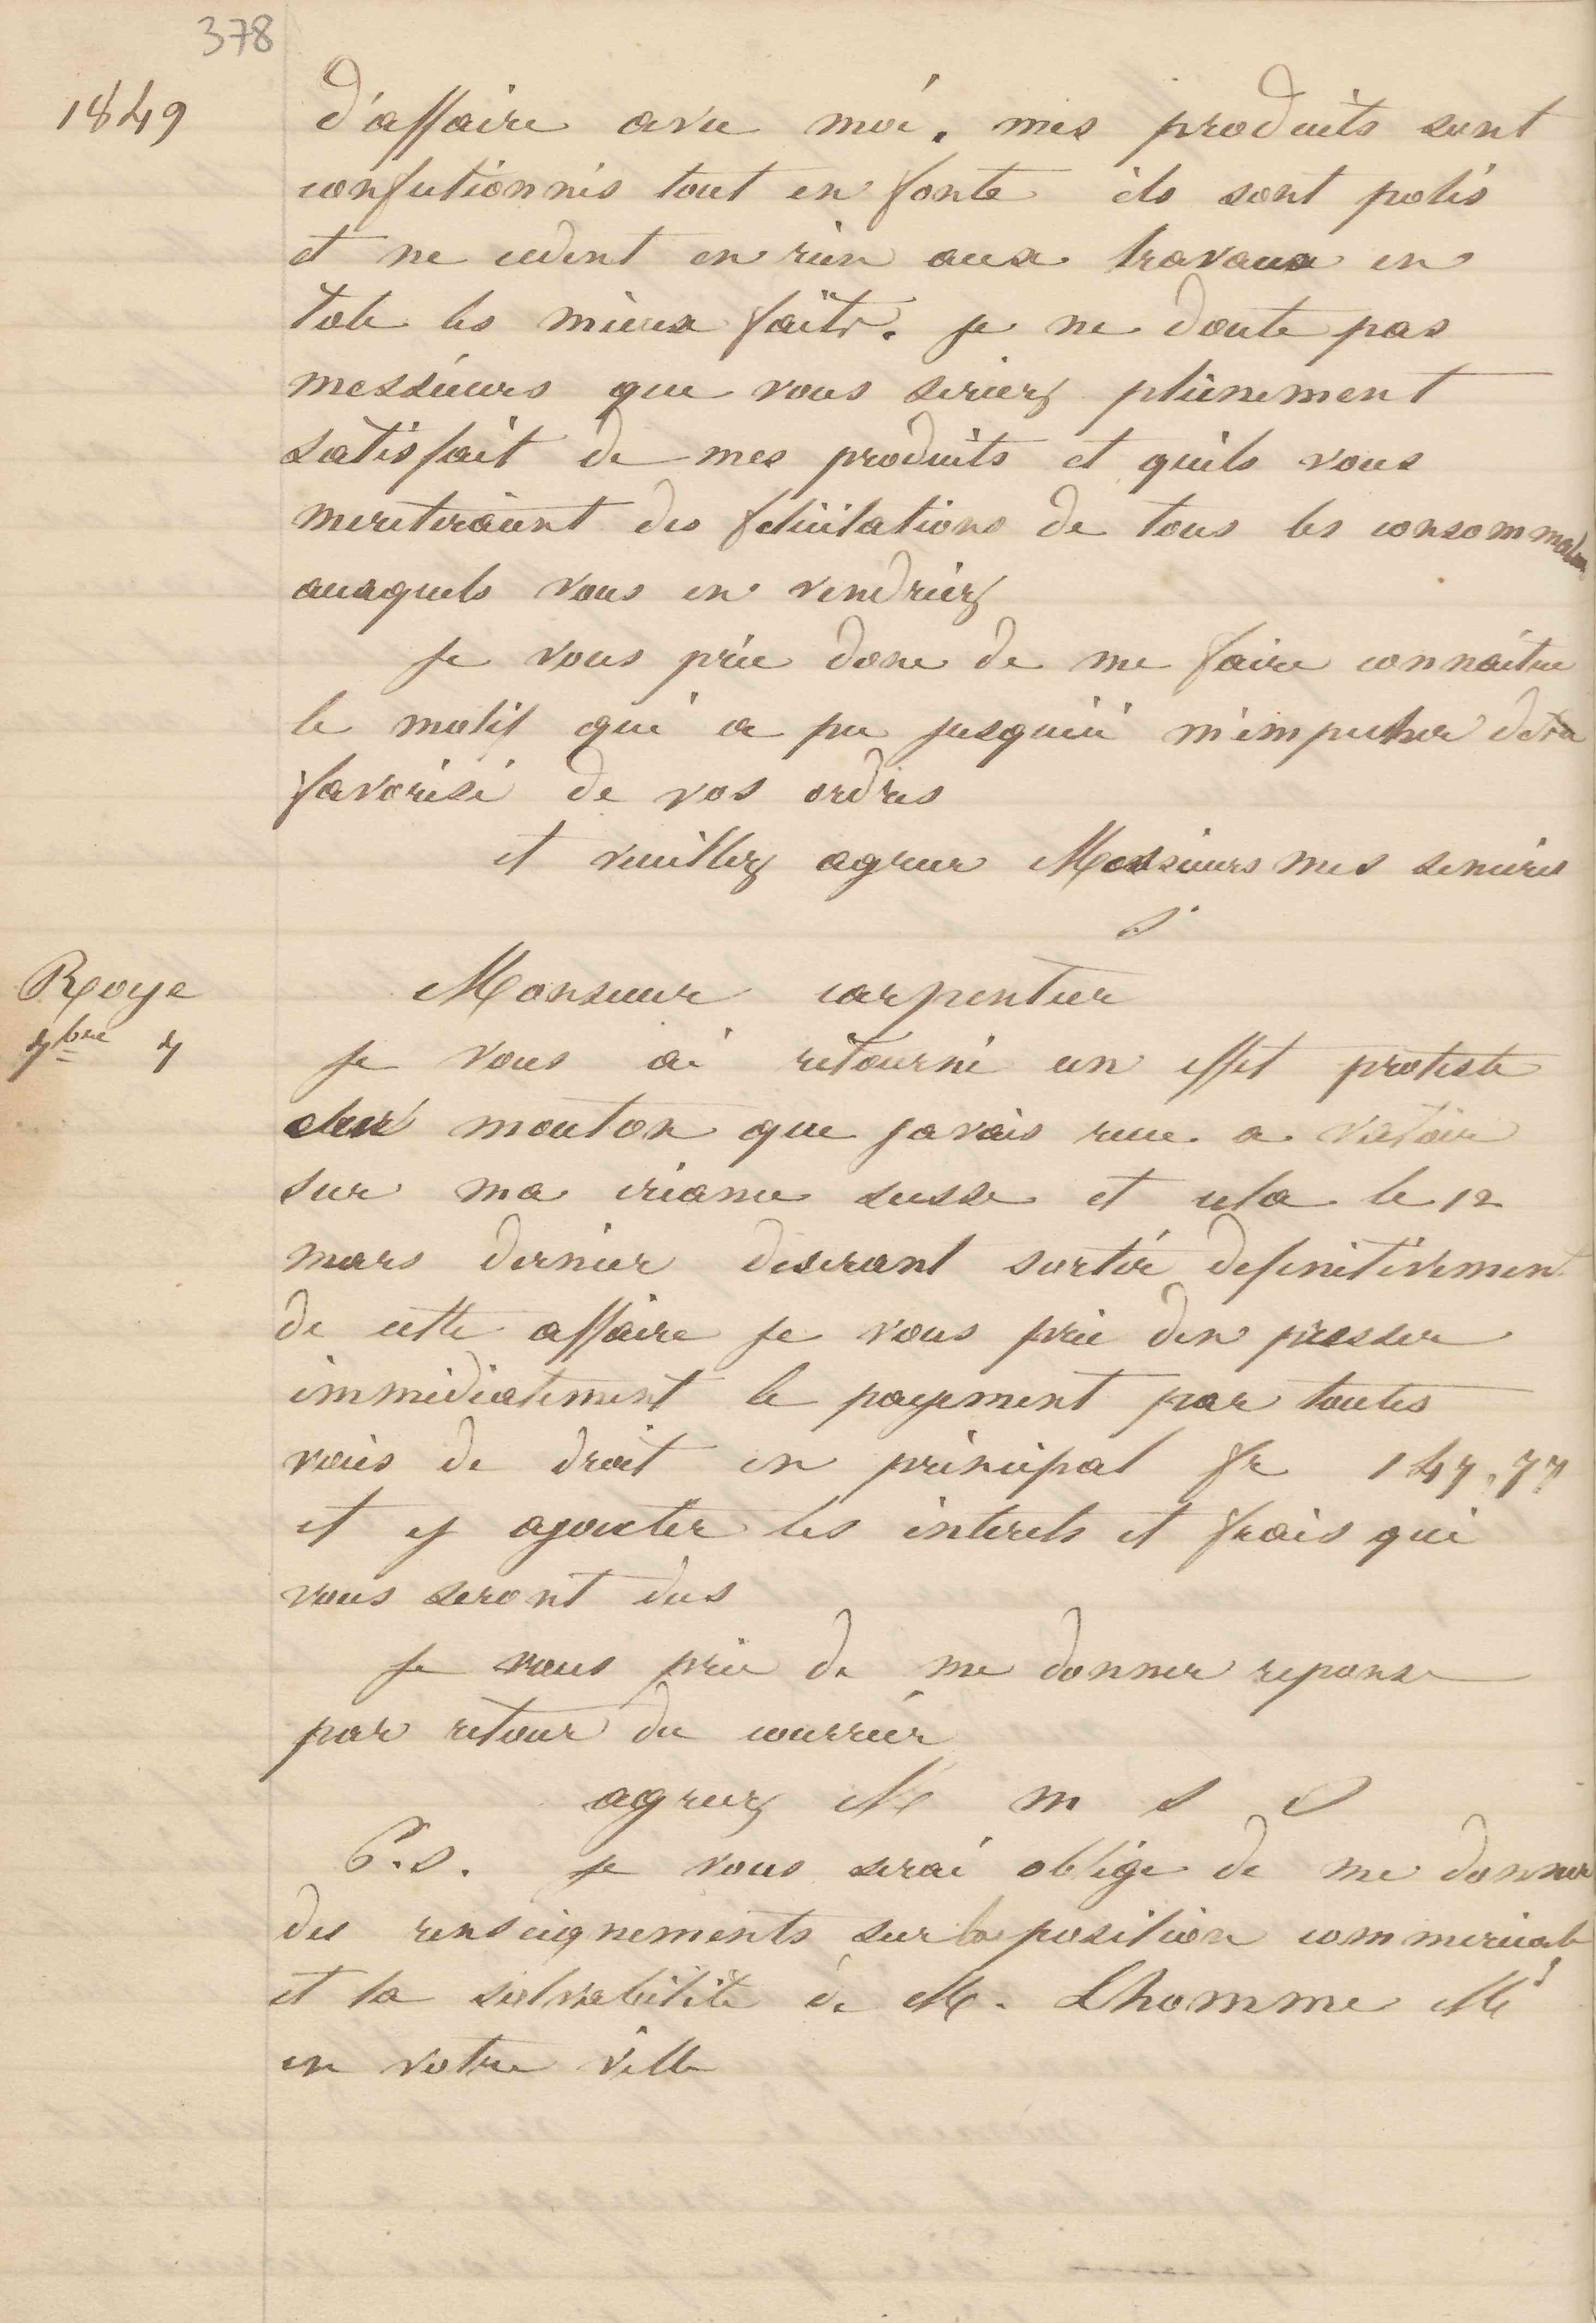 378
1849
d'affaire avec moi. mes produits sont
confectionnés tout en fonte ils sont polis
et ne cedent en rien aux travaux en
tole les mieux faits. je ne doute pas
messieurs que vous seriez pleinement
satisfait de mes produits et quils vous
meriteraient des felicitations de tous les consommateurs
auxquels vous en vendriez
je vous prie donc de me faire connaitre
le motif qui a pu jusquici m'empecher detre
favorisé de vos ordres
et veuillez agreer Messieurs mes sinceres
s
Roye
7bre 7
Monsieur carpentier
je vous ai retourné un effet protesté
chez mouton que javais recu a valoir
sur ma creance susse et cela le 12
mars dernier desirant sortir definitivement
de cette affaire je vous prie den presser
immediatement le payement par toutes
voies de droit en principal fr 147,77
et y ajouter les interets et frais qui
vous seront dus
je vous prie de me donner reponse
par retour du courrier
agreez M m s s
P.S. je vous serai obligé de me donner
des renseignements sur la position commerciale
et la solvabilité de M. Lhomme Md
en votre ville